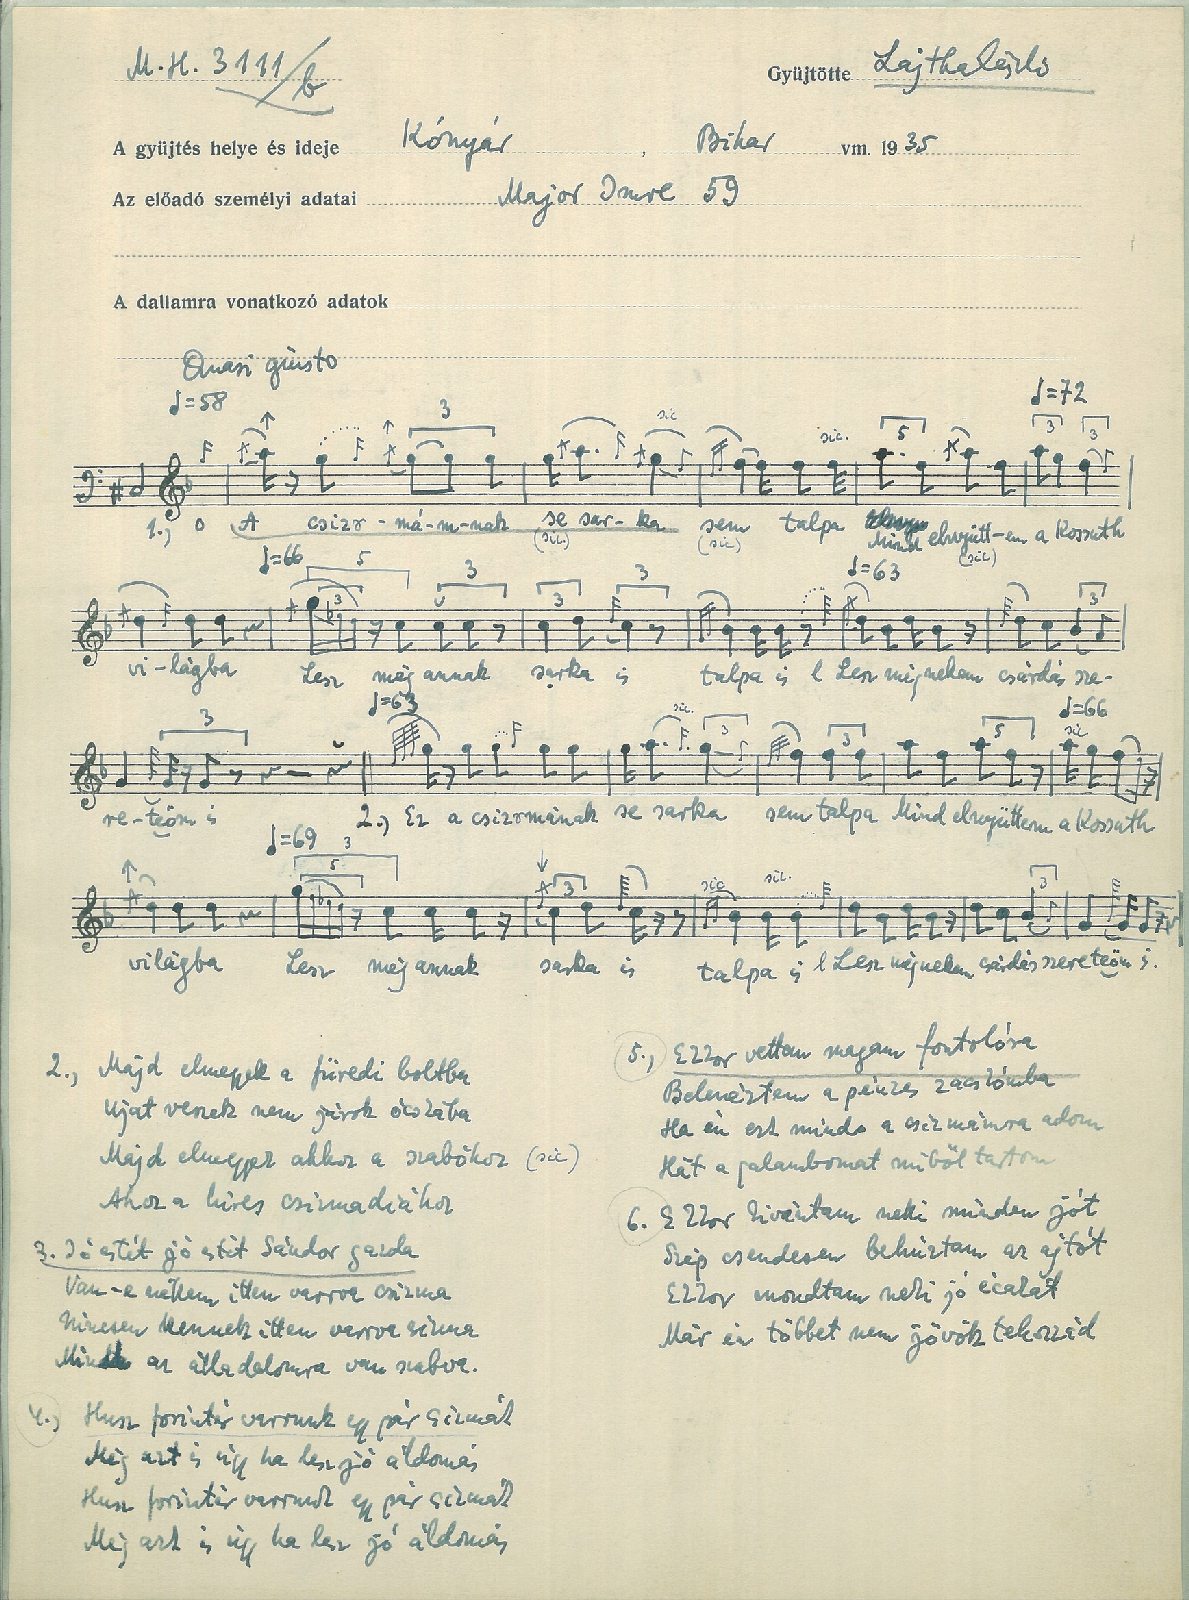 M.H. 3111/b
Gyüjtötte Lajtha László
A gyüjtés helye és ideje Kónyár, Bihar vm. 1935
Az előadó személyi adatai Major Imre 59
A dallamra vonatkozó adatok
Quasi giusto
♩=58 3 sic sic. 5 ♩=72 3 3
1.) A csizr-má-m-nak se sar-ka sem talpa Mind elnyütt-em a Kossuth
(sic) (sic) (sic)
♩=66 5 3 3 3 3 ♩=63 3
vi-lágba Lesz még annak sarka is talpa is l Lesz még nekem csárdás sze-
3 ♩=63 sic. 3 3 5 ♩=66 sic
re-teöm is 2.) Ez a csizrmának se sarka sem talpa Mind elnyüttem a Kossuth
♩=69 3 5 3 sic sic. 3
világba Lesz még annak sarka is talpa is l Lesz még nekem csárdás szereteöm is.
2., Májd elmegyek a füredi boltba
Ujat veszek nem járok ócskába
Májd elmegyek akkor a szabóhoz (sic)
Ahoz a hires csizmadiához
3. Jó estét jó estét Sándor gazda
Van-e nékem itten varrva csizma
Nincsen kennek itten varrva csizma
Mind az álladalomra van szabva.
4., Husz forintér varrunk egy pár csizmát
Még azt is úgy ha lesz jó áldomás
Husz forintér varrunk egy pár csizmát
Még azt is úgy ha lesz jó áldomás
5., Ekkor vettem magam fontolóra
Belenéztem a pénzes zacskómba
Ha én ezt mind a csizmámra adom
Hát a galambomat miből tartom
6. Ekkor kivántam neki minden jót
Szép csendesen behúztam az ajtót
Ekkor mondtam neki jó écakát
Már én többet nem jövök tehozzád